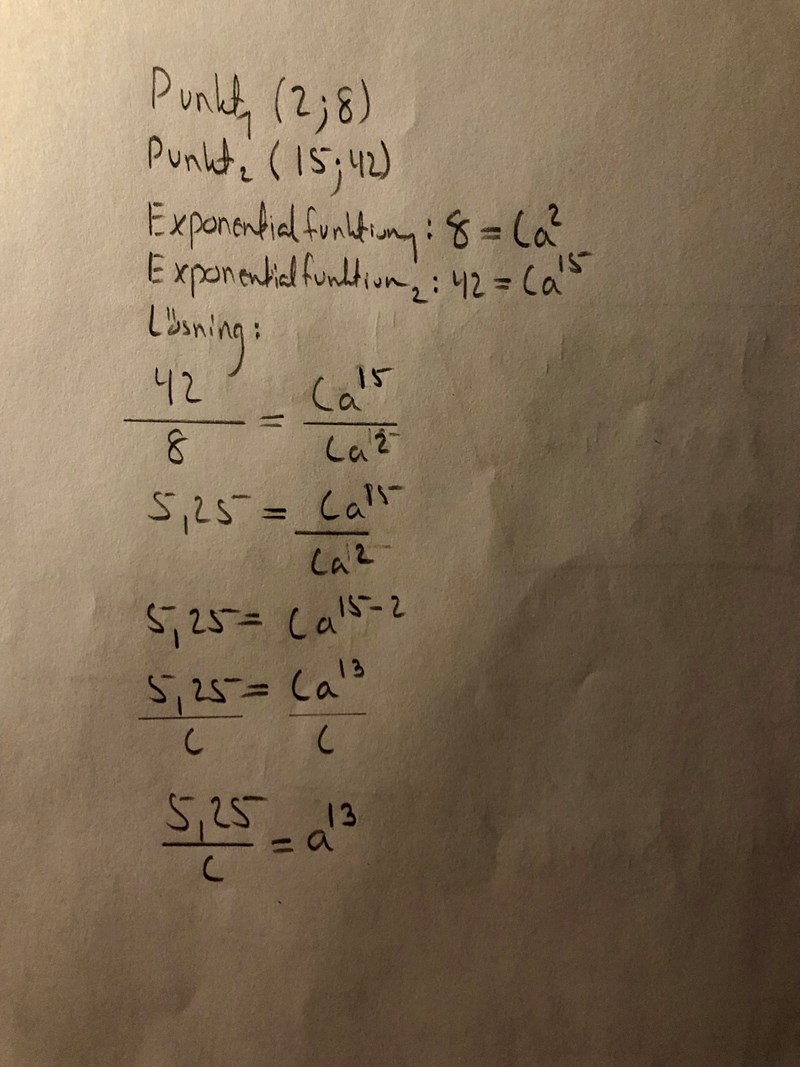 Punkt₁ (2;8)
Punkt₂ (15;42)
Exponentialfunktion₁: 8 = Ca²
Exponentialfunktion₂: 42 = Ca¹⁵
Lösning:
42/8 = Ca¹⁵/Ca²
5,25 = Ca¹⁵/Ca²
5,25 = Ca¹⁵⁻²
5,25/C = Ca¹³/C
5,25/C = a¹³